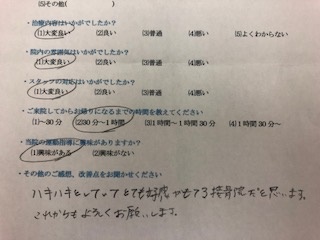 (5)その他(　　　　　)
・治療内容はいかがでしたか?
(1)大変良い (2)良い (3)普通 (4)悪い (5)よくわからない
・院内の雰囲気はいかがでしたか?
(1)大変良い (2)良い (3)普通 (4)悪い
・スタッフの対応はいかがでしたか?
(1)大変良い (2)良い (3)普通 (4)悪い
・ご来院してからお帰りになるまでの時間を教えてください
(1)~30分 (2)30分~1時間 (3)1時間~1時間30分 (4)1時間30分~
・当院の運動指導に興味がありますか?
(1)興味がある (2)興味がない
・その他のご感想、改善点をお聞かせください
ハキハキとしていてとても好感がもてる接骨院だと思います。
これからもよろしくお願いします。